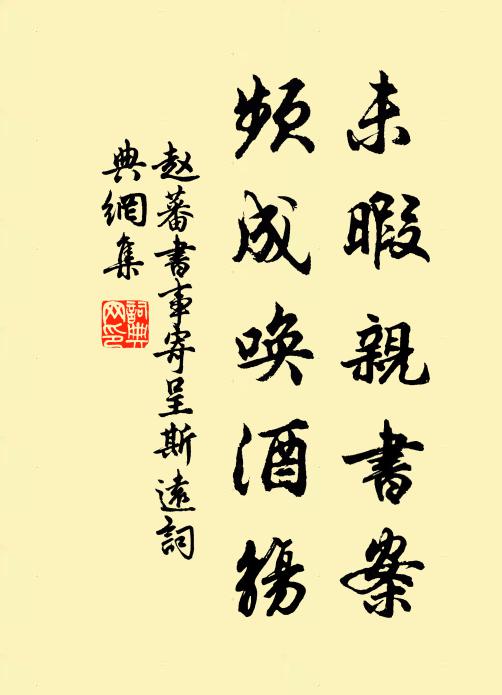 未暇親書案
頻成唤酒觴
赵蕃書事寄呈斯遠詞
典網集
詞典网印